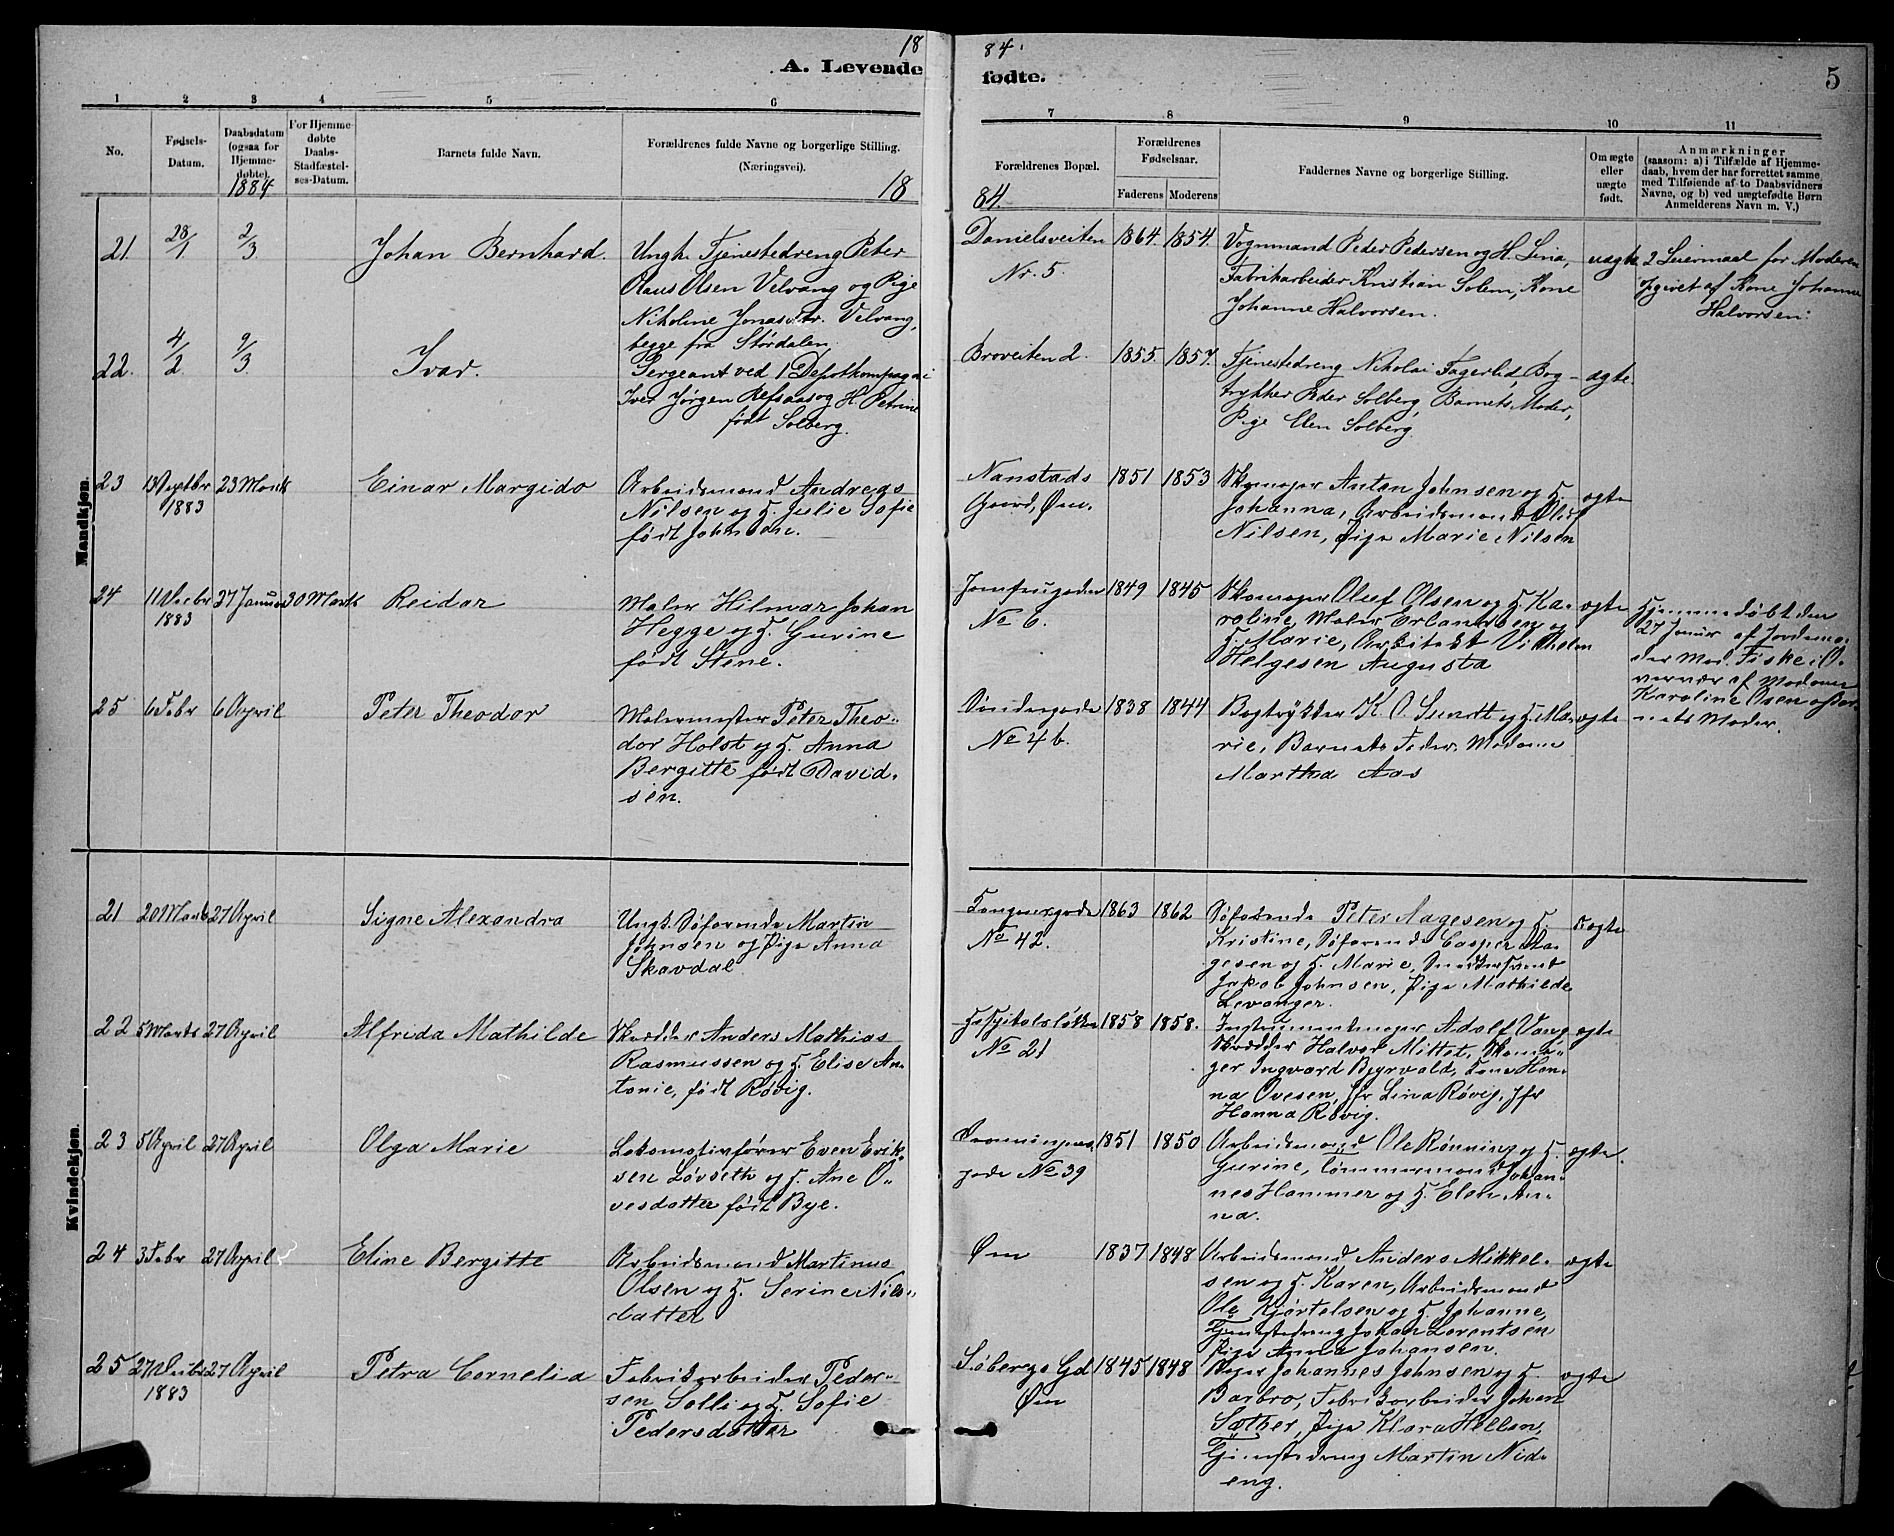 18
84.
A. Levende
fødte.
5
1
2
3
4
5
6
7
8
9
10
11
No.
Fødsels-
Datum.
Daabsdatum
(ogsaa for
Hjemme-
døbte).
1884
For Hjemme-
døbte
Daabs-
Stadfæstel-
ses-Datum.
Barnets fulde Navn.
Forældrenes fulde Navne og borgerlige Stilling.
(Næringsvei).
18
Forældrenes Bopæl.
84.
Forældrenes
Fødselsaar.
Faderens
Moderens
Faddernes Navne og borgerlige Stilling.
Om ægte
eller
uægte
født.
Anmærkninger
(saasom: a) i Tilfælde af Hjemme-
daab, hvem der har forrettet samme
med Tilføiende af to Daabsvidners
Navne, og b) ved uægtefødte Børn
Anmelderens Navn m. V.)
Mandkjøn.
21. 28/1 2/3 Johan Bernhard.
Ungk. Tjenestedreng Peter
Olaus Olsen Velvang og Pige
Nikoline Jonasdtr. Velvang,
begge fra Størdalen.
Danielsveiten
Nr. 5.
1864. 1854.
Vognmand Peder Pedersen og H. Lina,
Fabrikarbeider Kristian Solem, Kone
Johanne Halvorsen.
uægte
2 Leiermaal for Moderen
Opgivet af Kone Johanne
Halvorsen:
22. 4/2 9/3 Ivar.
Sergeant ved 1 Depotkompagni
Iver Jørgen Refsaas og H. Petrine
født Solberg.
Broveiten 2.
1855. 1857.
Tjenestedreng Nikolai Fagerlid, Bog-
trykker Peder Solberg, Barnets Moder,
Pige Elen Solberg.
ægte.
23 13 Septbr 23 Marts Einar Margido
1883
Arbeidsmand Andreas
Nilsen og H. Julie Sofie
født Johnsen.
Nanstads
Gaard, Øen.
1851 1853
Skomager Anton Johnsen og H.
Johanna, Arbeidsmand Oluf
Nilsen, Pige Marie Nilsen
ægte
24 11 Decbr 27 Januar 30 Marts Reidar
1883
Maler Hilmar Johan
Hegge og H. Gurine
født Stene.
Jomfrugaden
No 6.
1849 1845
Skomager Oluf Olsen og H. Ka-
roline, Maler Erlandsen og
H. Marie, Arkitekt Vilhelm
Helgesen Augusta
ægte
Hjemmedøbt den
27 Januar af Jordemo-
der Mad. Fiske i O-
vervær af Madame
Karoline Olsen og Bar-
nets Moder.
25 6 Febr 6 April Peter Theodor
Malermester Peter Theo-
dor Holst og H. Anna
Bergitte født David-
sen.
Søndregade
No 4b.
1838 1844
Bogtrykker K. O. Sundt og H. Ma-
rie, Barnets Fader, Madame
Martha Aas
ægte
Kvindekjøn.
21 20 Marts 27 April Signe Alexandra
Ungk. Søfarende Martin
Johnsen og Pige Anna
Skavdal
No 42.
1863 1862
Søfarende Peter Aagesen og H.
Kristine, Søfarende Casper Aa-
gesen og H. Marie, Snedkersvend
Jakob Johnsen, Pige Mathilde
Levanger.
uægte
22 5 Marts 27 April Alfreda Mathilde
Skrædder Anders Mathias
Rasmussen og H. Elise An-
tonie, født Røvig.
Hospitalsløkken
No 21
1858 1858.
Instrumentmager Adolf Vang
Skrædder Halvor Mittet, Skoma-
ger Ingvard Byrvald, Kone Han-
na Ovesen, Jfr Lina Røvig, Jfr
Hanna Røvig.
ægte
23 5 April 27 April Olga Marie
Lokomotivfører Even Erik-
sen Løvseth og H. Ane O-
vesdatter født Bye.
Dronningens
gade No 39
1851 1850
Arbeidsmand Ole Rønning og H.
Gurine, Tømmermand Johan-
nes Hammer og H. Elen An-
na.
ægte.
24 3 Febr 27 April Eline Bergitte
Arbeidsmand Martinus
Olsen og H. Serine Nils-
datter
Øen
1837 1848
Arbeidsmand Anders Mikkel-
sen og H. Karen, Arbeidsmand
Ole Kjørtelsen og H. Johanne,
Tjenestedreng Johan Lorentsen
Pige Anna Johansen.
ægte
25 27 Decbr 27 April Petra Cornelia
1883
Fabrikarbeider Peder-
sen Solli og H. Sofie
Pedersdatter
Søbergs Gd
Øen
1845 1848
Johannes Johnsen og H.
Barbro, Fabrikarbeider Johan
Sæther, Pige Klara Hellem,
Tjenestedreng Martin Nid-
eng.
ægte